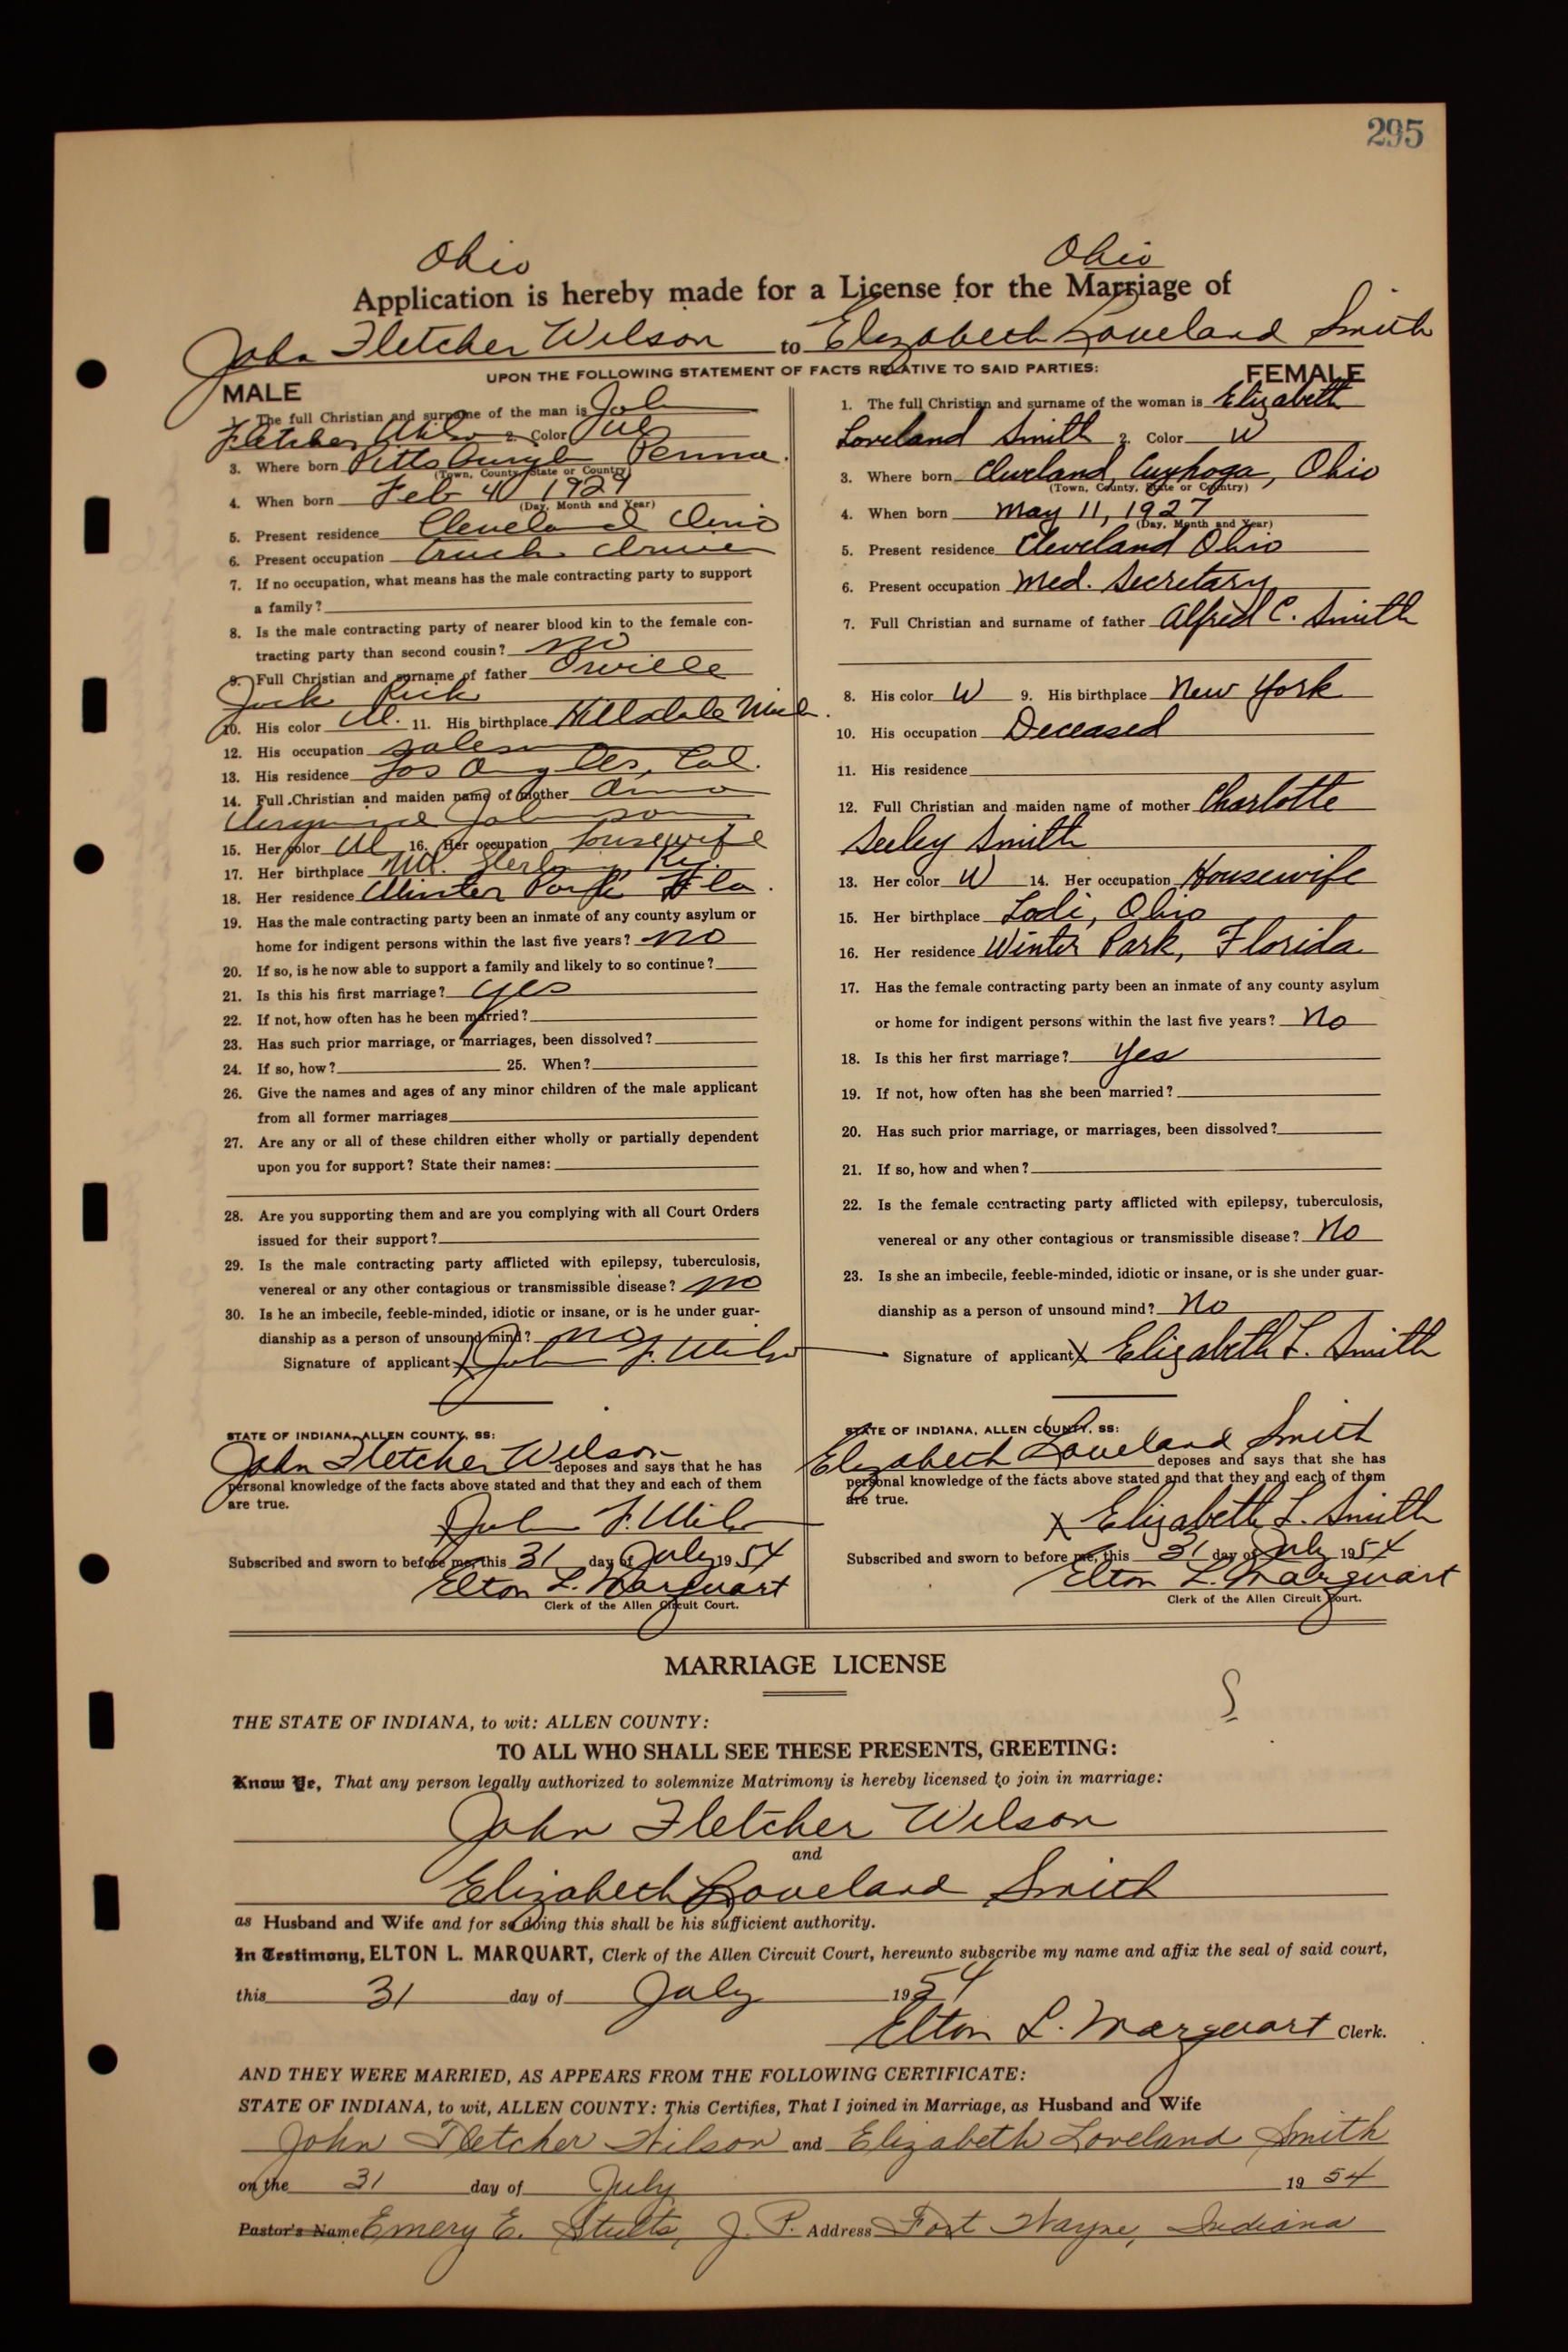 295
Ohio Ohio
Application is hereby made for a License for the Marriage of
John Fletcher Wilson to Elizabeth Loveland Smith
UPON THE FOLLOWING STATEMENT OF FACTS RELATIVE TO SAID PARTIES:
MALE
1. The full Christian and surname of the man is John
Fletcher Wilson 2. Color
3. Where born Pittsburgh Penna.
(Town, County, State or Country)
4. When born Feb 4 1929
(Day, Month and Year)
5. Present residence Cleveland Ohio
6. Present occupation Truck Driver
7. If no occupation, what means has the male contracting party to support
a family?
8. Is the male contracting party of nearer blood kin to the female con-
tracting party than second cousin? no
9. Full Christian and surname of father Orville
Jack
10. His color W. 11. His birthplace Hillsdale Mich.
12. His occupation
13. His residence Los Angeles, Cal.
14. Full Christian and maiden name of mother
Johnson
15. Her color W 16. Her occupation housewife
17. Her birthplace Mt. Sterling Ky.
18. Her residence Winter Park Fla.
19. Has the male contracting party been an inmate of any county asylum or
home for indigent persons within the last five years? no
20. If so, is he now able to support a family and likely to so continue?
21. Is this his first marriage? yes
22. If not, how often has he been married?
23. Has such prior marriage, or marriages, been dissolved?
24. If so, how? 25. When?
26. Give the names and ages of any minor children of the male applicant
from all former marriages
27. Are any or all of these children either wholly or partially dependent
upon you for support? State their names:
28. Are you supporting them and are you complying with all Court Orders
issued for their support?
29. Is the male contracting party afflicted with epilepsy, tuberculosis,
venereal or any other contagious or transmissible disease? no
30. Is he an imbecile, feeble-minded, idiotic or insane, or is he under guar-
dianship as a person of unsound mind? no
Signature of applicant x John F. Wilson
STATE OF INDIANA, ALLEN COUNTY, SS:
John Fletcher Wilson deposes and says that he has
personal knowledge of the facts above stated and that they and each of them
are true.
x John F. Wilson
Subscribed and sworn to before me, this 31 day of July 1954
Elton L. Marquart
Clerk of the Allen Circuit Court.
FEMALE
1. The full Christian and surname of the woman is Elizabeth
Loveland Smith 2. Color W
3. Where born Cleveland, Cuyhoga, Ohio
(Town, County, State or Country)
4. When born May 11, 1927
(Day, Month and Year)
5. Present residence Cleveland Ohio
6. Present occupation Med. Secretary
7. Full Christian and surname of father Alfred C. Smith
8. His color W 9. His birthplace New York
10. His occupation Deceased
11. His residence
12. Full Christian and maiden name of mother Charlotte
Seeley Smith
13. Her color W 14. Her occupation Housewife
15. Her birthplace Lodi, Ohio
16. Her residence Winter Park, Florida
17. Has the female contracting party been an inmate of any county asylum
or home for indigent persons within the last five years? No
18. Is this her first marriage? Yes
19. If not, how often has she been married?
20. Has such prior marriage, or marriages, been dissolved?
21. If so, how and when?
22. Is the female contracting party afflicted with epilepsy, tuberculosis,
venereal or any other contagious or transmissible disease? No
23. Is she an imbecile, feeble-minded, idiotic or insane, or is she under guar-
dianship as a person of unsound mind? No
Signature of applicant x Elizabeth L. Smith
STATE OF INDIANA, ALLEN COUNTY, SS:
Elizabeth Loveland Smith deposes and says that she has
personal knowledge of the facts above stated and that they and each of them
are true.
x Elizabeth L. Smith
Subscribed and sworn to before me, this 31 day of July 1954
Elton L. Marquart
Clerk of the Allen Circuit Court.
MARRIAGE LICENSE
THE STATE OF INDIANA, to wit: ALLEN COUNTY:
TO ALL WHO SHALL SEE THESE PRESENTS, GREETING:
Know Ye, That any person legally authorized to solemnize Matrimony is hereby licensed to join in marriage:
John Fletcher Wilson
and
Elizabeth Loveland Smith
as Husband and Wife and for so doing this shall be his sufficient authority.
In Testimony, ELTON L. MARQUART, Clerk of the Allen Circuit Court, hereunto subscribe my name and affix the seal of said court,
this 31 day of July 1954
Elton L. Marquart Clerk.
AND THEY WERE MARRIED, AS APPEARS FROM THE FOLLOWING CERTIFICATE:
STATE OF INDIANA, to wit, ALLEN COUNTY: This Certifies, That I joined in Marriage, as Husband and Wife
John Fletcher Wilson and Elizabeth Loveland Smith
on the 31 day of July 1954
Pastor's Name Emery E. Stults, J. P. Address Fort Wayne, Indiana